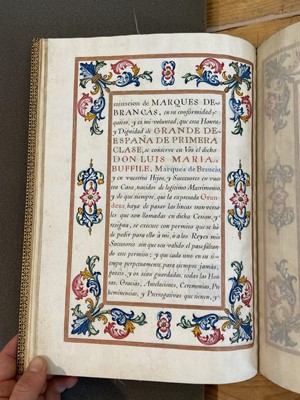 minacion de MARQUES DE-
BRANCAS, en su conformidad
quiero, y es mi voluntad, que esta Honra,
y Dignidad de GRANDE DE-
ESPAÑA DE PRIMERA
CLASE, se conserve en Vos el dicho
DON LUIS MARIA
BUFFILE, Marques de Brancas,
y en vuestros Hijos, y Successores en vues-
tra Casa, nacidos de legitimo Matrimonio,
y de que siempre, que la expresada Gran-
deza, haya de pasar las lineas transversa-
les que son llamadas en dicha Cesion, y
resigna, se execute con permiso que se há
de pedir para ello á mi, ó á los Reyes mis
Successores sin que sea valido el pase faltan-
do este permiso; y que cada uno en su ti-
empo perpetuamente, para siempre jamás,
goceis, y os sean guardadas, todas las Hon-
ras, Gracias, Antelaciones, Ceremonias, Pre-
heminencias, y Prerrogativas que tienen, y